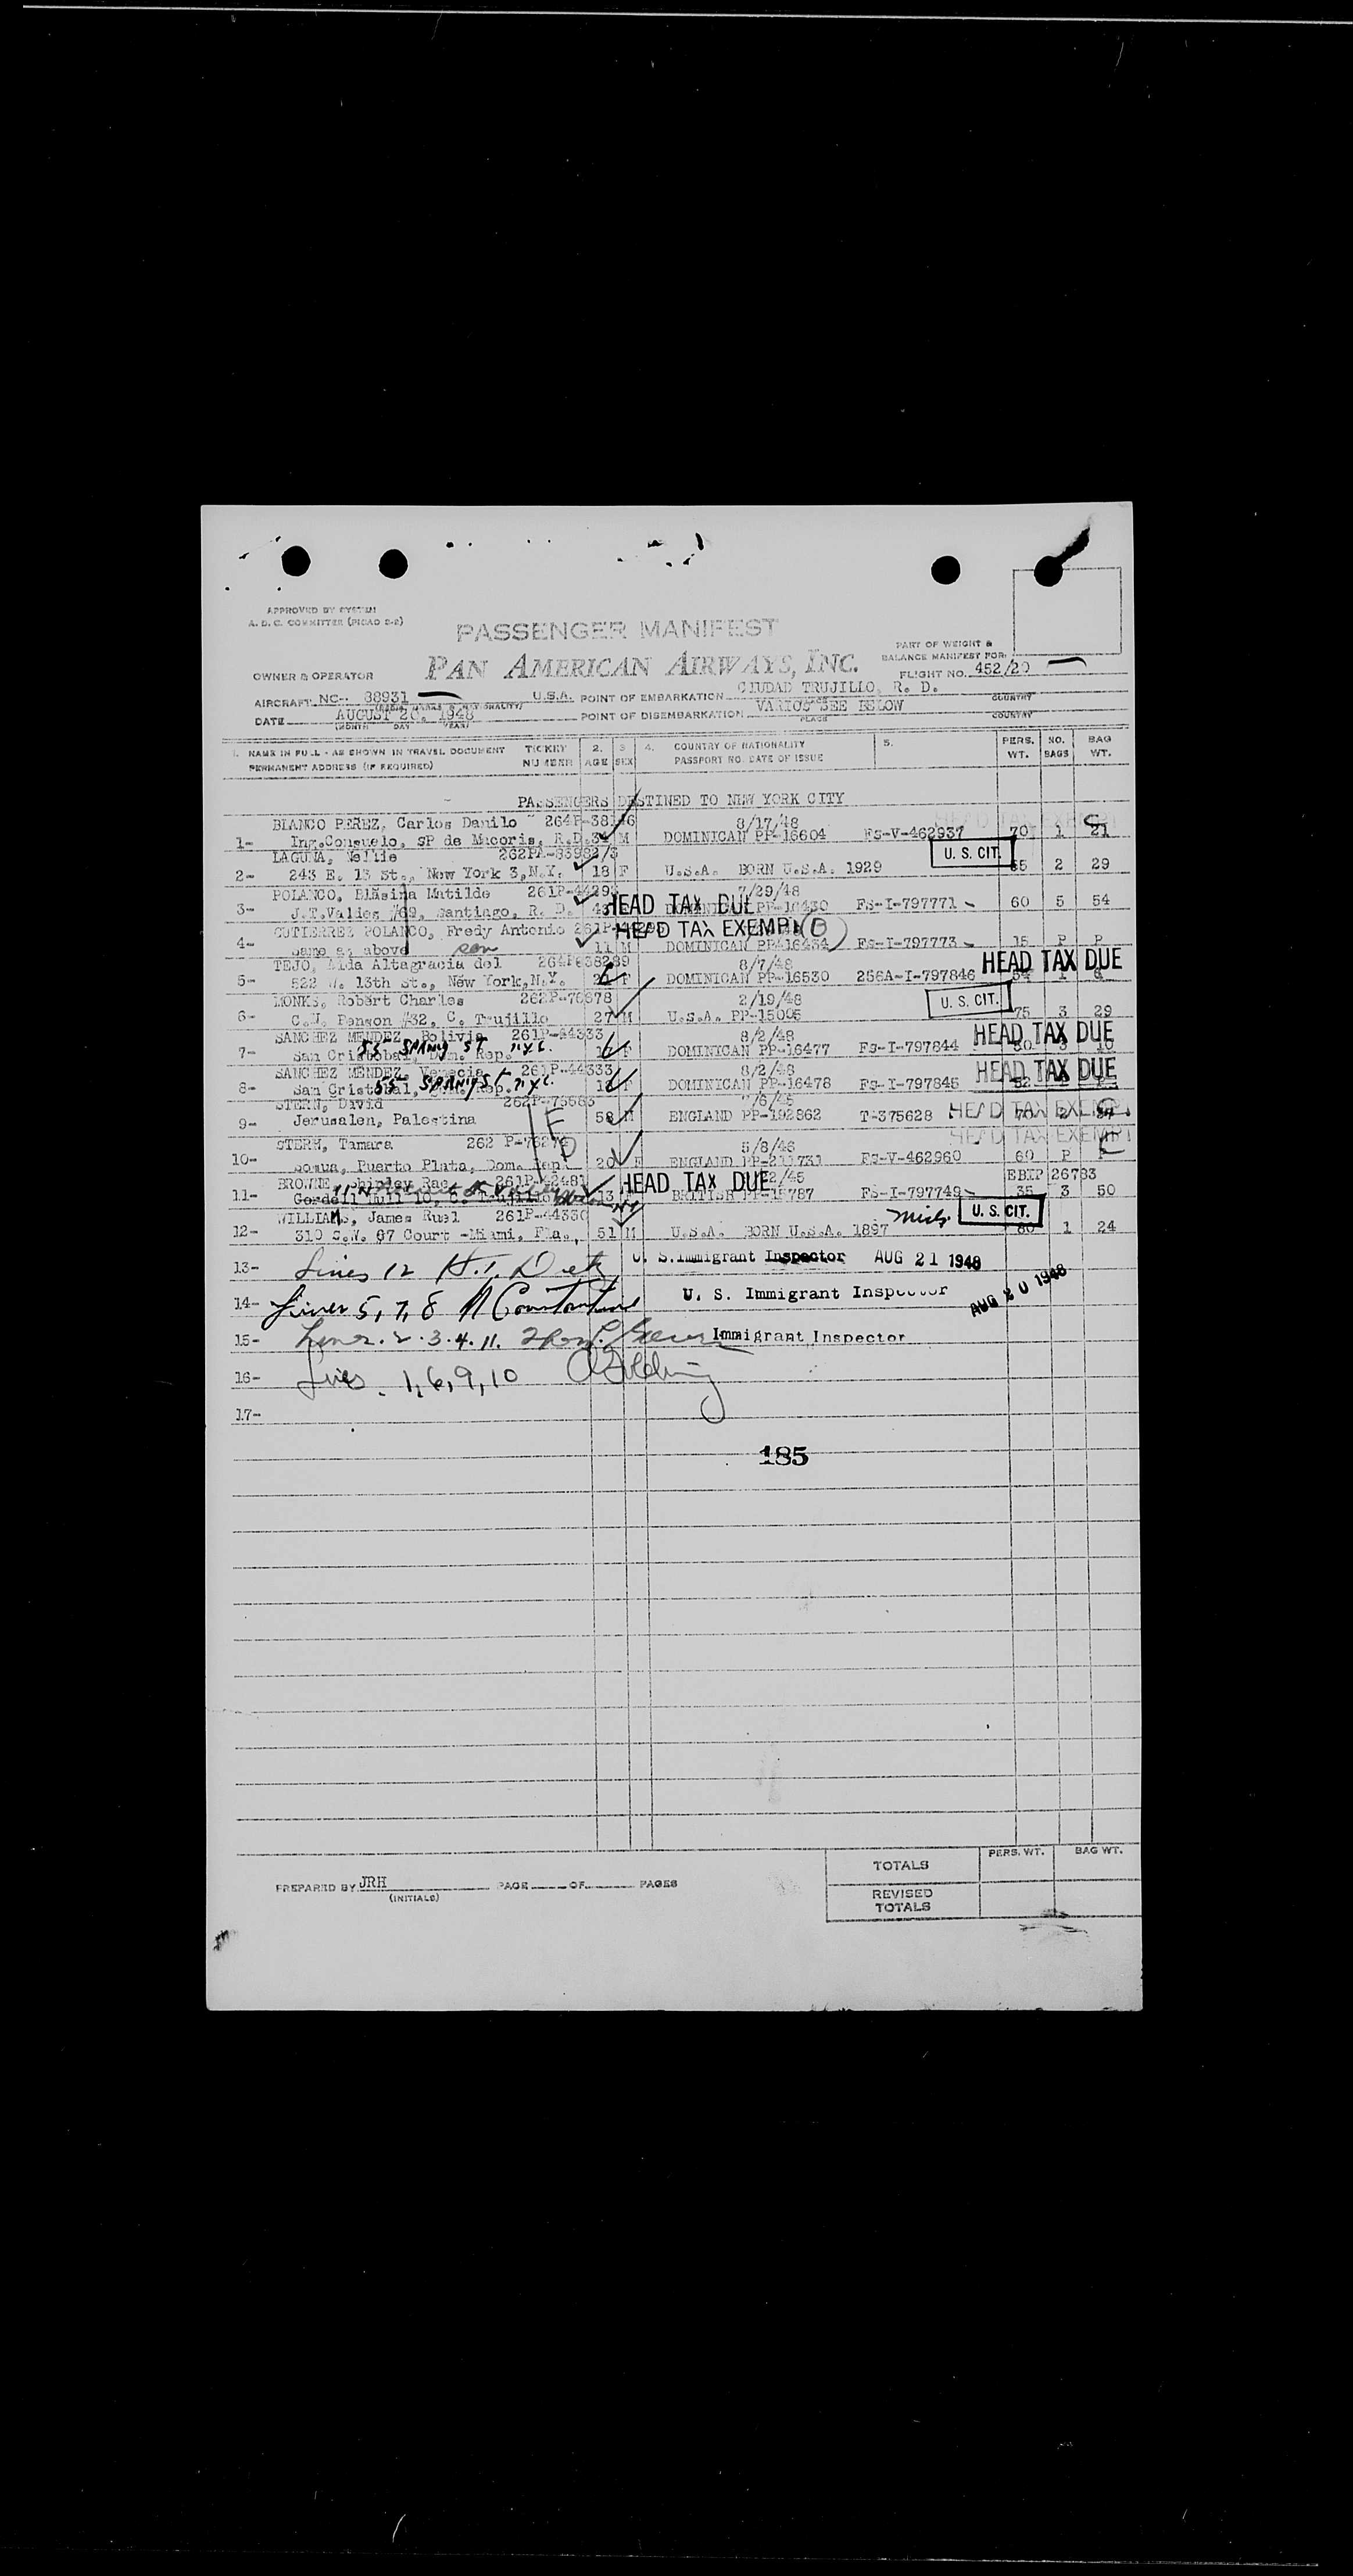 APPROVED BY SYSTEM
A. D. C. COMMITTEE (PICAO 2-2)
PASSENGER MANIFEST
PART OF WEIGHT &
BALANCE MANIFEST FOR:
OWNER & OPERATOR PAN AMERICAN AIRWAYS, INC. FLIGHT NO. 452/20
AIRCRAFT NC-- 88931 U.S.A. POINT OF EMBARKATION CIUDAD TRUJILLO, R. D. COUNTRY
DATE AUGUST 20, 1948 POINT OF DISEMBARKATION VARIOS SEE BELOW COUNTRY
(MONTH) DAY (YEAR) PLACE
1. NAME IN FULL - AS SHOWN IN TRAVEL DOCUMENT TICKET 2. 3 4. COUNTRY OF NATIONALITY 5. PERS. NO. BAG
PERMANENT ADDRESS (IF REQUIRED) NUMBER AGE SEX PASSPORT NO. DATE OF ISSUE WT. BAGS WT.
PASSENGERS DESTINED TO NEW YORK CITY
BLANCO PEREZ, Carlos Danilo 264P-38146 8/17/48 HEAD TAX EXEMPT
1- Ing.Consuelo, SP de Macoris, R.D. 34 M DOMINICAN PP-16604 FS-V-462937 70 1 21
LAGUNA, Nellie U. S. CIT.
2- 243 E. 13 St., New York 3,N.Y. 18 F U.S.A. BORN U.S.A. 1929 2 29
POLANCO, Matilde 7/29/48
3- J.T.Valdes #69, Santiago, R. D. HEAD TAX DUE FS-I-797771 60 5 54
GUTIERREZ POLANCO, Fredy Antonio HEAD TAX EXEMPT
4- same as above son 11 M DOMINICAN PP-16434 FS-I-797773 15 P P
TEJO, Aida Altagracia del 8/7/48 HEAD TAX DUE
5- 522 W. 13th St., New York,N.Y. F DOMINICAN PP-16530 256A-I-797846
MONKS, Robert Charles 262P-76678 2/19/48 U. S. CIT.
6- #32, C. Trujillo 27 M U.S.A. PP-15095 75 3 29
SANCHEZ MENDEZ, Bolivia 261P-44333 8/2/48 HEAD TAX DUE
7- San Cristobal, Dom. Rep. 55 SPRING ST. N.Y.C. F DOMINICAN PP-16477 FS-I-797844
SANCHEZ MENDEZ, Venecia 261P-44333 8/2/48 HEAD TAX DUE
8- San Cristobal, Dom. Rep. 55 SPRING ST N.Y.C. F DOMINICAN PP-16478 FS-I-797845
STERN, David
9- Jerusalen, Palestina 58 M ENGLAND PP-192862 T-375628 HEAD TAX EXEMPT
STERN, Tamara 5/8/46 HEAD TAX EXEMPT
10- Sosua, Puerto Plata, Dom. Rep. 20 F ENGLAND PP-211731 FS-V-462960 60 P
BROWNE, Shirley Rae HEAD TAX DUE EBIP 26783
11- BRITISH PP-15787 FS-I-797749 35 3 50
WILLIAMS, James Ruel 261P-44330 U. S. CIT.
12- 310 S.W. 67 Court -Miami, Fla., 51 M U.S.A. BORN U.S.A. 1897 80 1 24
13- Lines 12 U. S. Immigrant Inspector AUG 21 1948
14- Lines 5, 7, 8 U. S. Immigrant Inspector AUG 20 1948
15- Lines 2.3.4.11. Immigrant Inspector
16- Lines 1,6,9,10
17-
185
PERS. WT. BAG WT.
TOTALS
PREPARED BY JRH PAGE OF PAGES
(INITIALS)
REVISED
TOTALS